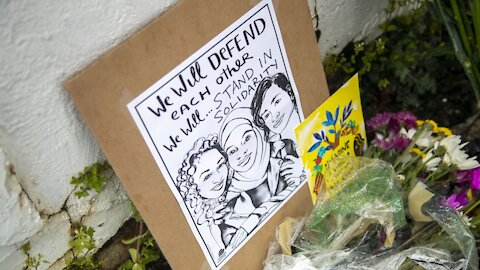 We Will DEFEND
each other
We Will... STAND IN
SOLIDARITY
LOVE